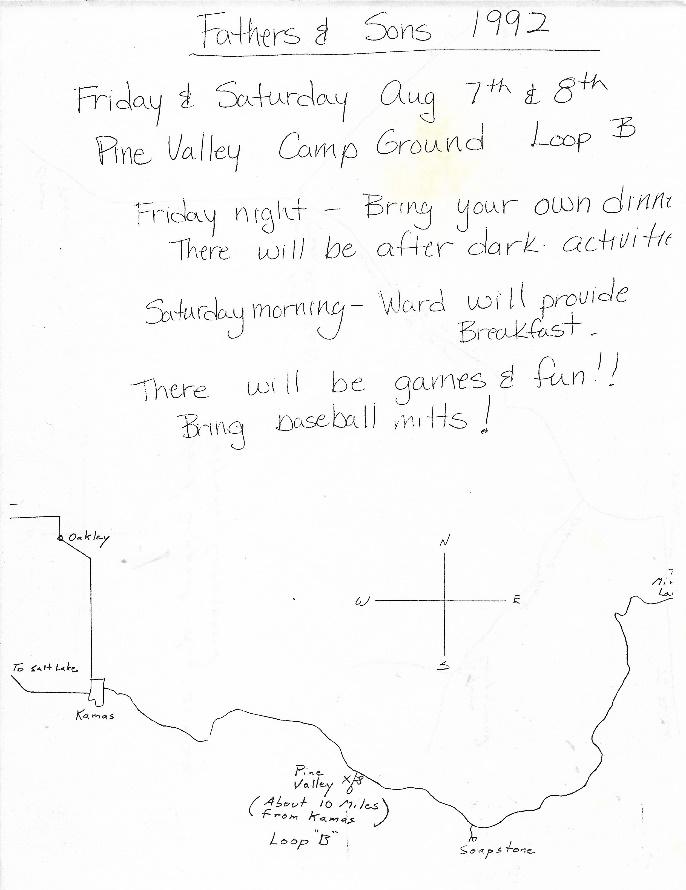 Fathers & Sons 1992
Friday & Saturday Aug 7th & 8th
Pine Valley Camp Ground Loop B
Friday night - Bring your own dinne
There will be after dark activitie
Saturday morning - Ward will provide
Breakfast.
There will be games & fun!!
Bring baseball mitts!
Oakley
N
W E
S
To Salt Lake
Kamas
Pine
Valley
(About 10 Miles)
from Kamas
Loop "B"
Soapstone